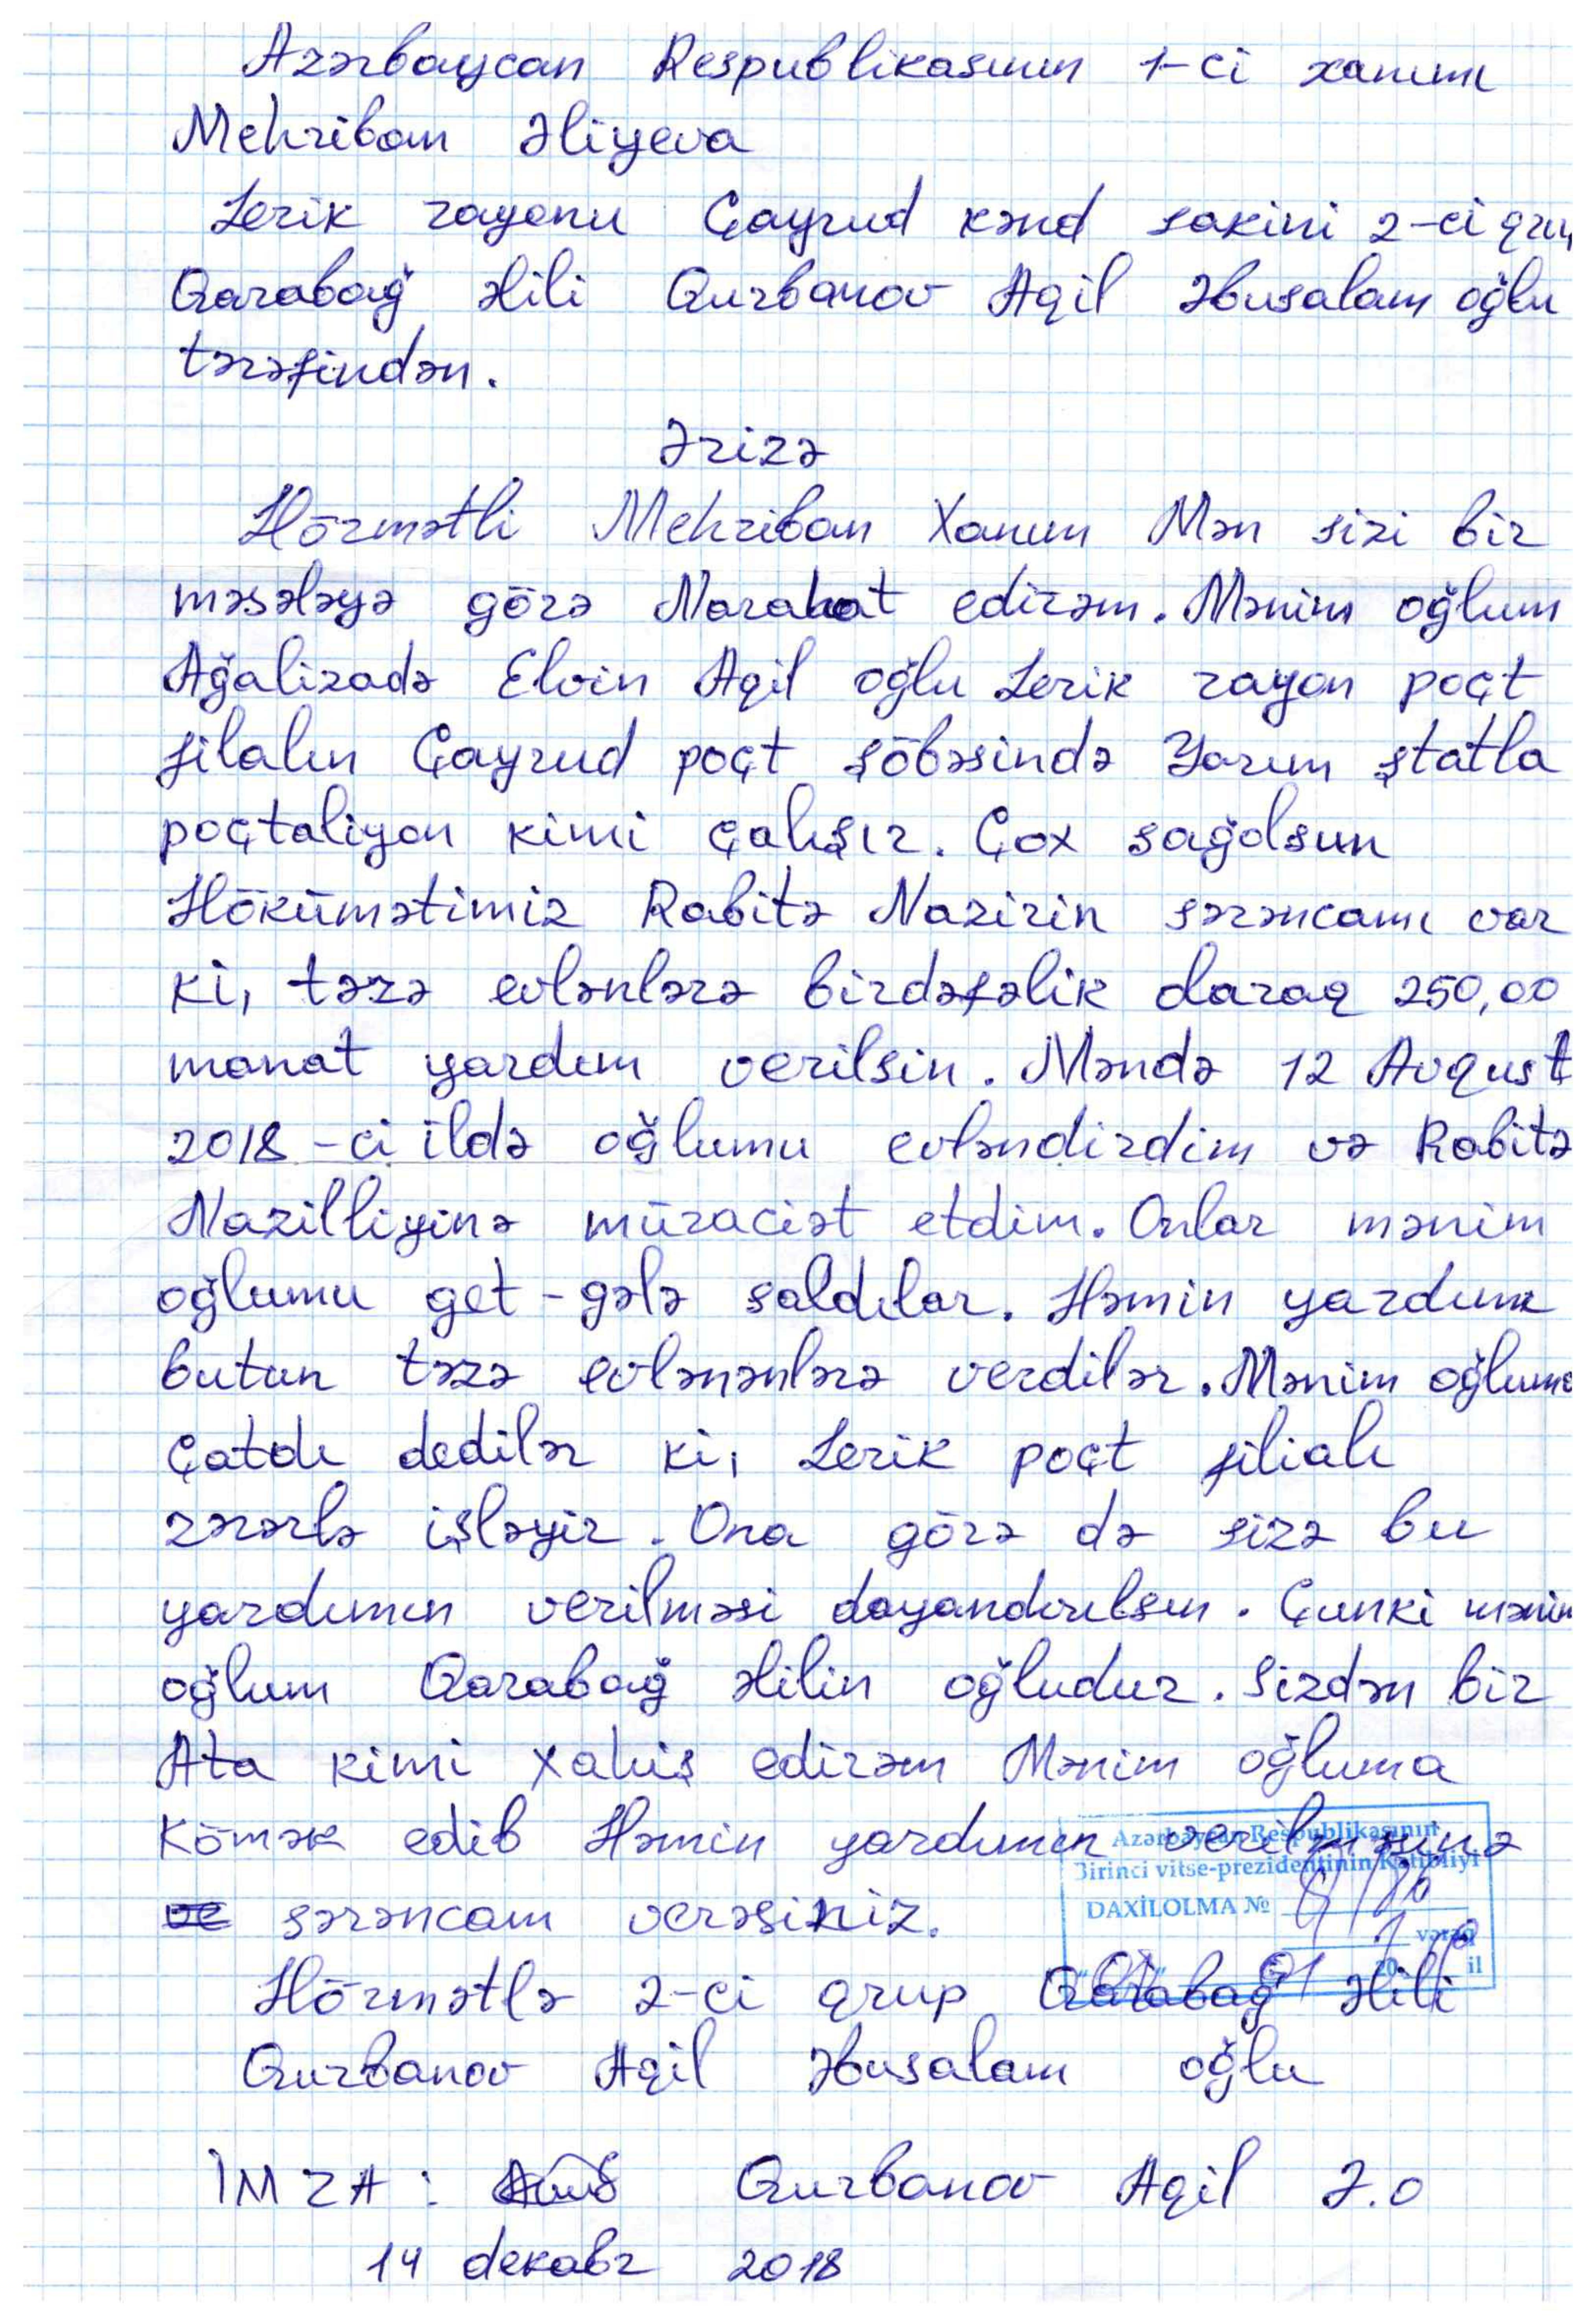 Azərbaycan Respublikasının 1-ci xanımı
Mehriban Əliyeva
Lerik rayonu Çayrud kənd sakini 2-ci qrup
Qarabağ əlili Qurbanov Aqil Əbusalam oğlu
tərəfindən.
Ərizə
Hörmətli Mehriban Xanım Mən sizi bir
məsələyə görə Narahat edirəm. Mənim oğlum
Ağalizadə Elvin Aqil oğlu Lerik rayon poçt
filalın Çayrud poçt şöbəsində Yarım ştatla
poçtaliyon kimi çalışır. Çox sağolsun
Hökümətimiz Rabitə Nazirin sərəncamı var
ki, təzə evlənlərə birdəfəlik olaraq 250,00
manat yardım verilsin. Məndə 12 Avqust
2018-ci ildə oğlumu evləndirdim və Rabitə
Nazilliyinə müraciət etdim. Onlar mənim
oğlumu get-gələ saldılar. Həmin yardımı
butun təzə evlənənlərə verdilər. Mənim oğluma
çatdı dedilər ki, Lerik poçt filialı
zərərlə işləyir. Ona görə də sizə bu
yardımın verilməsi dayandırılsın. Çunki mənim
oğlum Qarabağ əlilin oğludur. Sizdən bir
Ata kimi xahiş edirəm Mənim oğluma
Kömək edib Həmin yardımın verilməsinə
sərəncam verəsiniz.
Azərbaycan Respublikasının
Birinci vitse-prezidentinin Katibliyi
DAXİLOLMA №
vərəq
20 il
Hörmətlə 2-ci qrup Qarabağ əlili
Qurbanov Aqil Əbusalam oğlu
İMZA: Qurbanov Aqil Ə.O
14 dekabr 2018